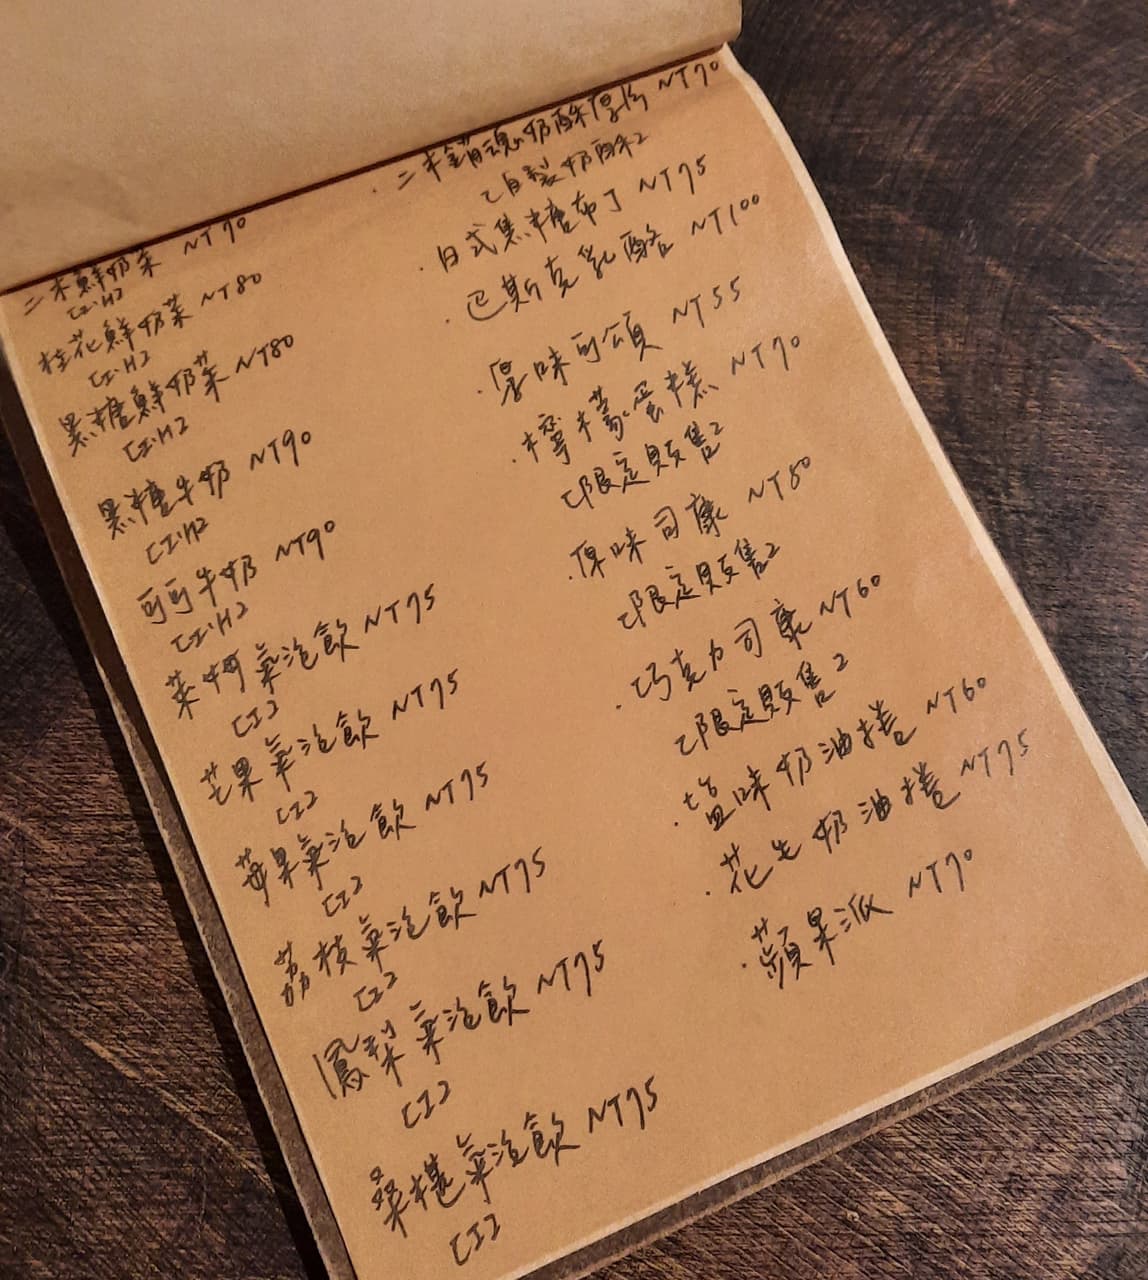 二木鮮奶茶 NT70
[I.H]
桂花鮮奶茶 NT80
[I.H]
黑糖鮮奶茶 NT80
[I.H]
黑糖牛奶 NT90
[I.H]
可可牛奶 NT90
[I.H]
萊姆氣泡飲 NT75
[I]
芒果氣泡飲 NT75
[I]
莓果氣泡飲 NT75
[I]
荔枝氣泡飲 NT75
[I]
鳳梨氣泡飲 NT75
[I]
桑椹氣泡飲 NT75
[I]
· 二木銷魂奶酥厚片 NT70
[自製奶酥]
· 日式焦糖布丁 NT75
· 巴斯克乳酪 NT100
· 原味可頌 NT55
· 檸檬蛋糕 NT70
[限定販售]
· 原味司康 NT50
[限定販售]
· 巧克力司康 NT60
[限定販售]
· 塩味奶油捲 NT60
· 花生奶油捲 NT75
· 蘋果派 NT70